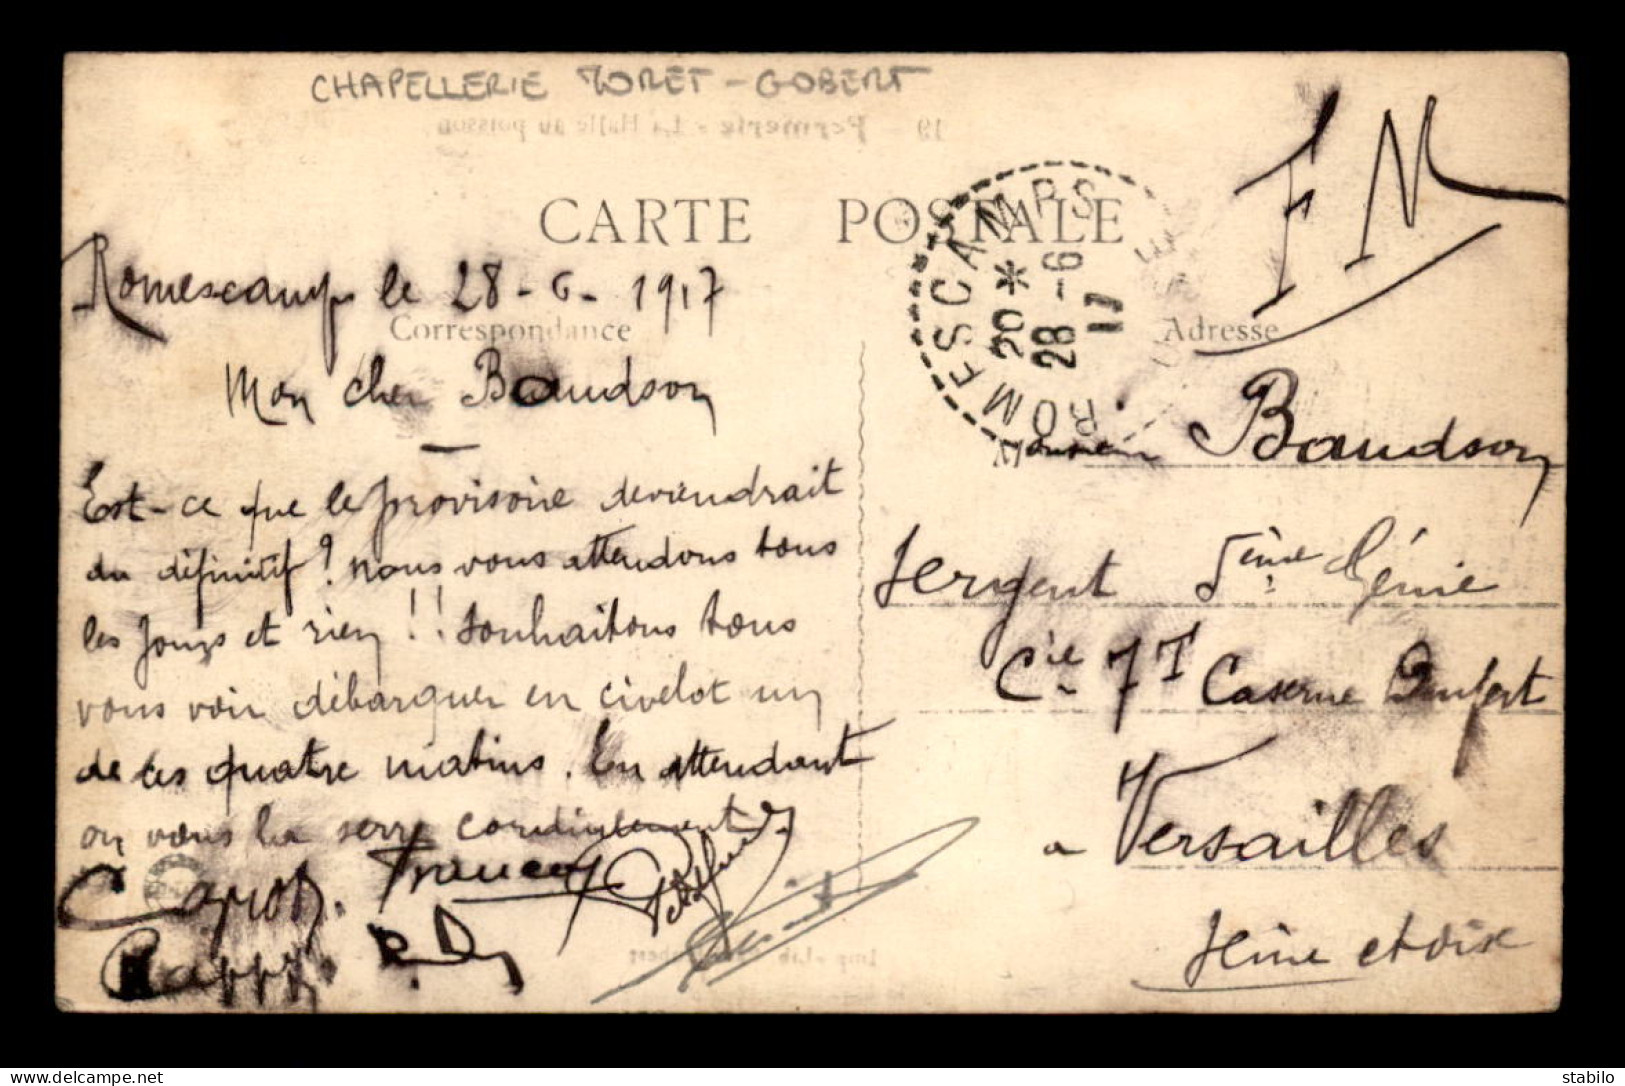 CHAPELLERIE TORET - GOBERT
19 - Formerie - La Halle au poisson
CARTE POSTALE
ROMESCAMPS
OISE
20 *
28 - 6
17
F M
Romescamps le 28 - 6 - 1917
Correspondance
Adresse
Mon cher Baudson
Est-ce que le provisoire deviendrait
du définitif ? nous vous attendons tous
les jours et rien !! souhaitons tous
vous voir débarquer en civelot un
de ces quatre matins. En attendant
on vous la serre cordialement
Monsieur Baudson
Sergent 5ème Génie
Cie 7T Caserne Denfert
a Versailles
Seine et oise
delcampe.net
stabilo